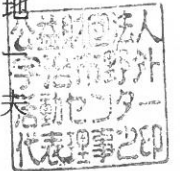 地
一
夫
公益財団法人
宇治市野外
活動センター
代表理事之印